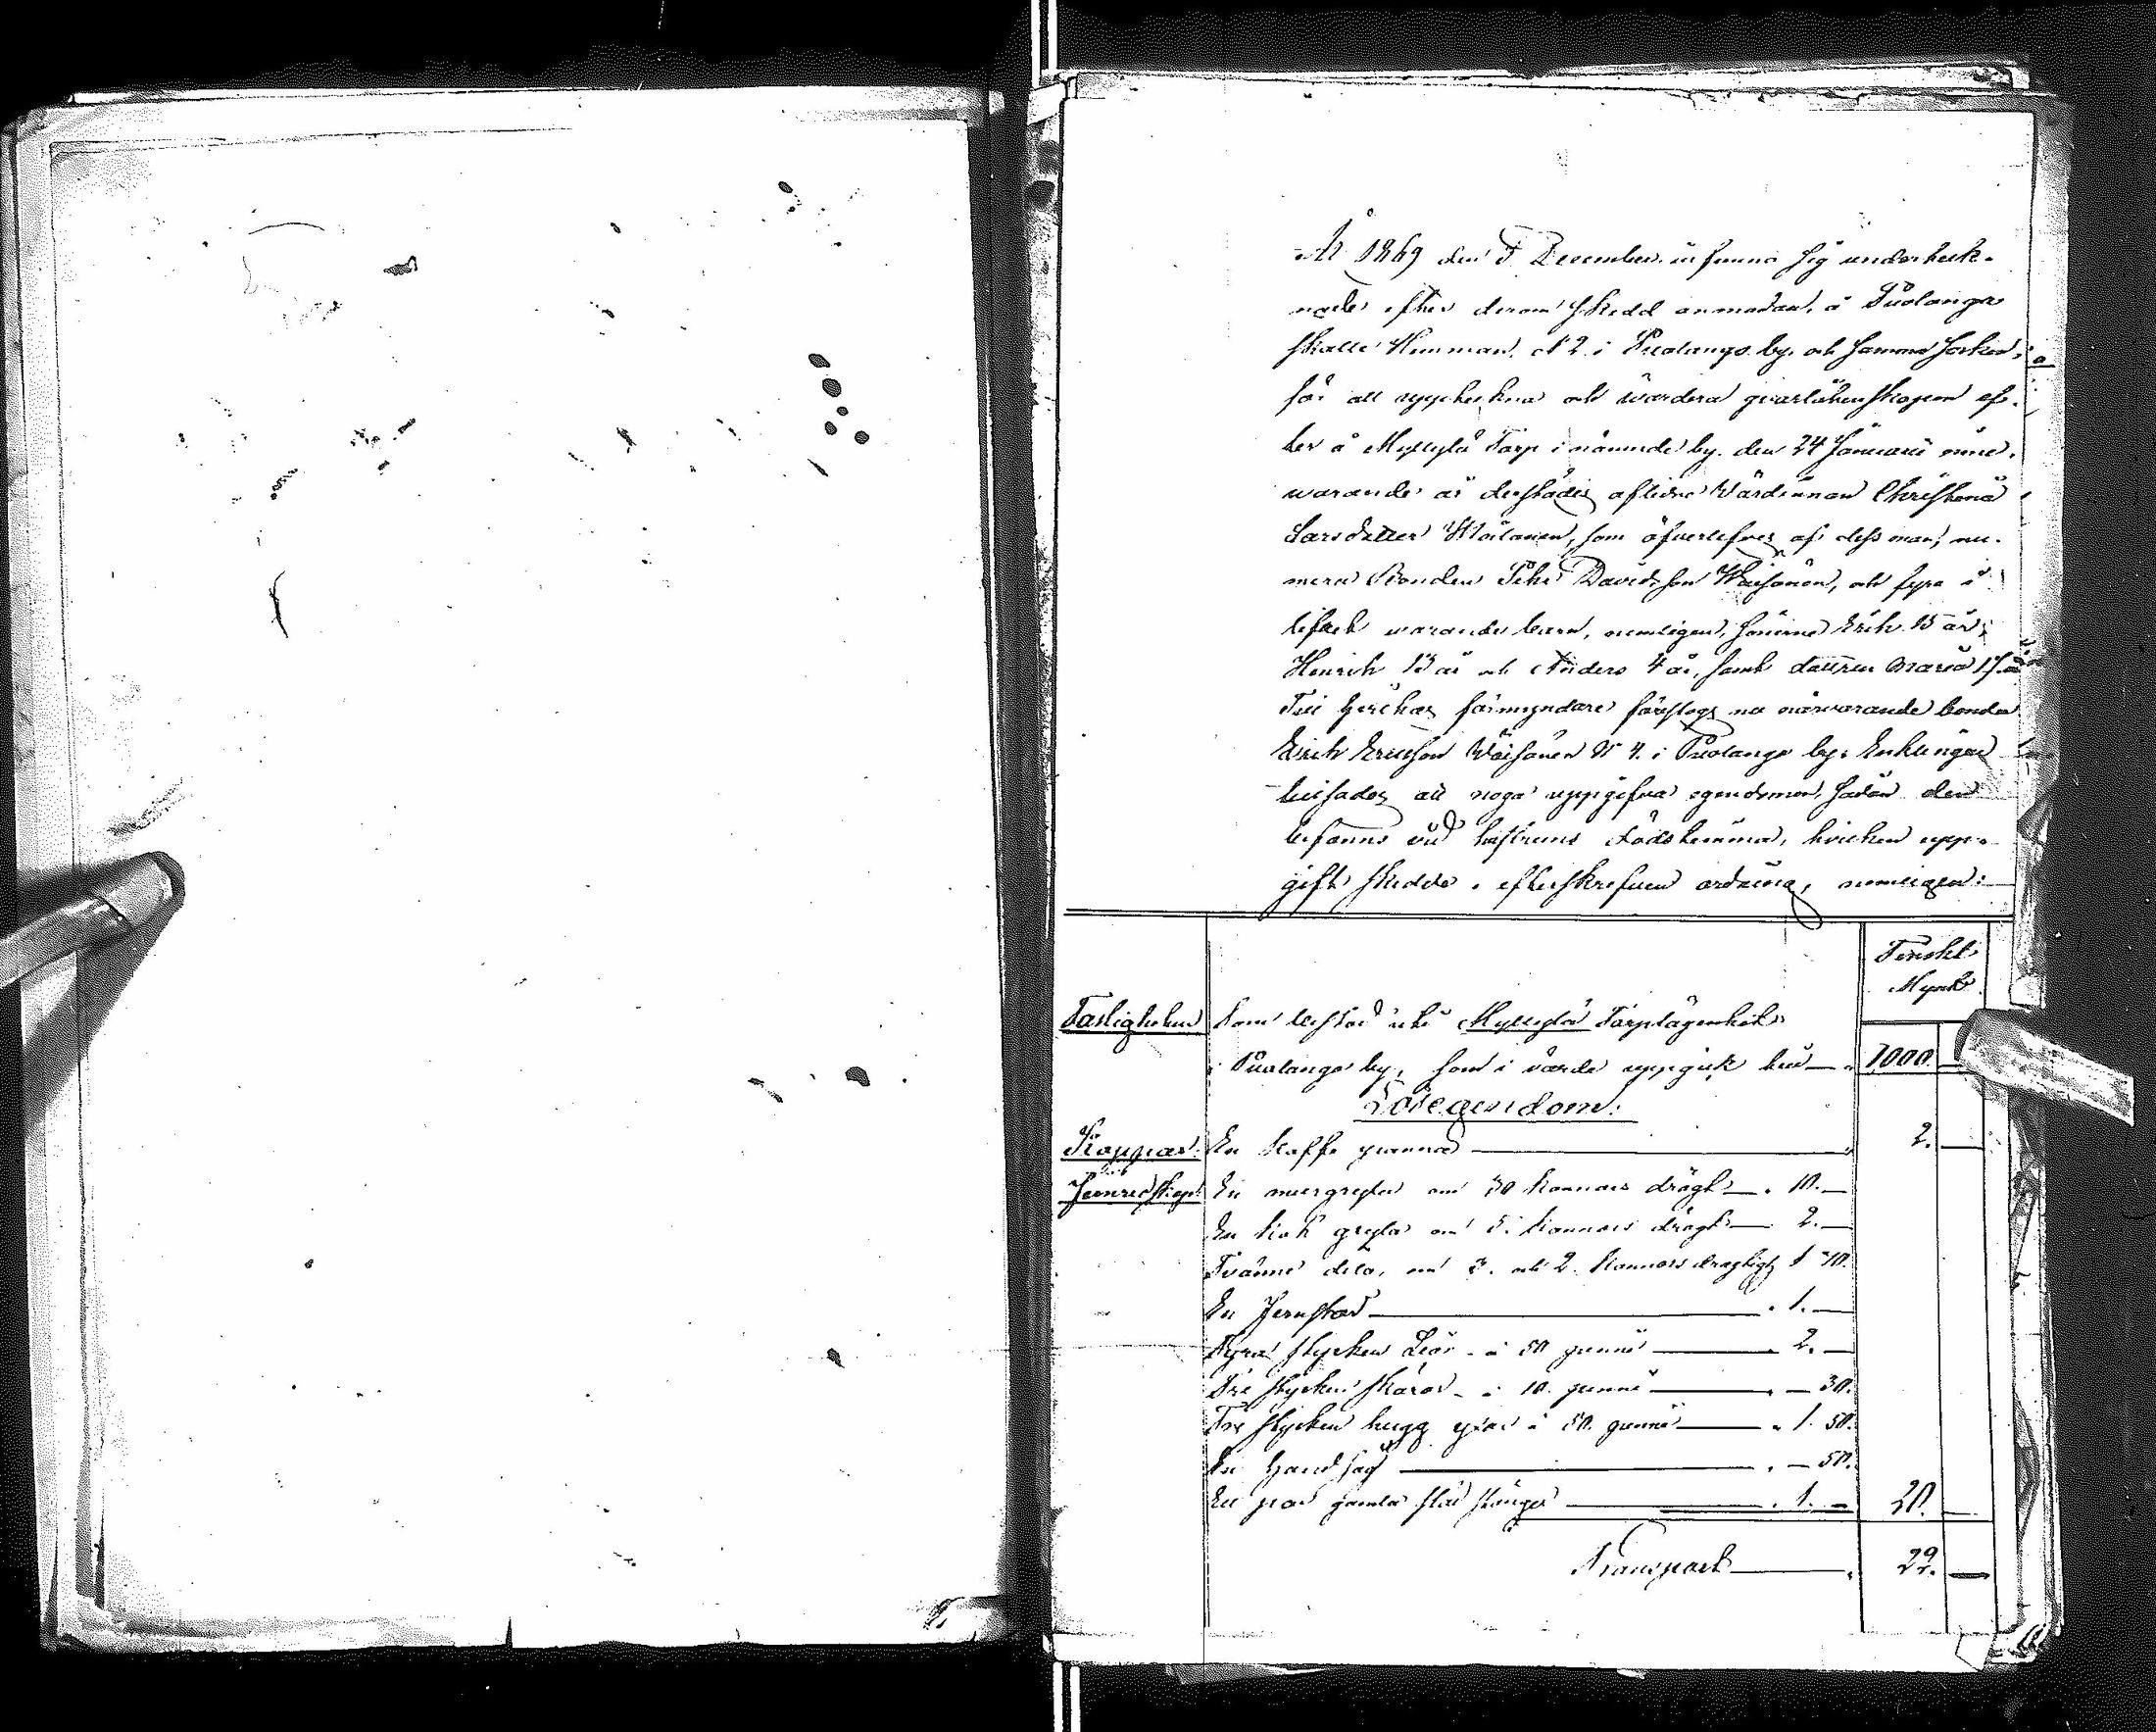 År 1869 den 7 December infunno sig underteck-
nade efter derom skedd anmodan, å Puolanga
skatte Hemman N 2 i Puolango by och samma socken,
för att uppteckna och värdera qvarlåtenskapen ef-
ter å Myllylä Torp i nämnde by den 24 Januarii inne-
warande år derstädes aflidne Wärdinnan Christina
Larsdotter Moilanen, som öfverlefves af dess man, nu-
mera Bonden Pehr Davidsson Wäisänen, och fyra i
lifvet warande barn, nemligen, sönerne Erik 15 år,
Henrik 13 år och Anders 4 år, samt dottren Maria 17 år
Till hvilkas förmyndare föreslogs nu närvarande bonden
Erik Ericsson Wäisänen N 4 i Puolango by. Enklingen
tillsades att noga uppgifva egendomen, sådan den
befanns vid hustruns dödstimma, hvilken upp-
gift skedde i efterskrefven ordning, nemligen:
Finskt
Mynt
Fastigheten som består uti Myllylä Torplägenhet
i Puolango by, som i värde uppgick till 1000.
Lösegendom:
Koppar: En kaffe panna 2.
Jernredskap: En mur gryta om 30 kannors drägt 10.
En kok gryta om 5 kannors drägt 2.
Tvänne dito, om 3 och 2 kannors draglighet 1 70.
En Jernstör 1.
Fyra stycken Liar à 50 penni 2.
Tre stycken skäror à 10 penni 30.
Tre stycken hugg yxor à 50 penni 1. 50.
En Handsåg 50.
Ett par gamla 1. 20.
Transport 22.